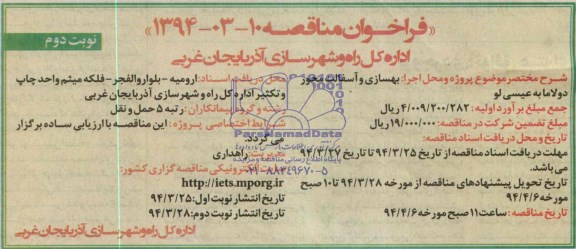 «فراخوان مناقصه ۱۰-۰۳-۱۳۹۴»
نوبت دوم
اداره کل راه و شهرسازی آذربایجان غربی
شرح مختصر موضوع پروژه و محل اجرا: بهسازی و آسفالت محور
دولاما به عیسی لو
جمع مبلغ برآورد اولیه: ۴/۰۰۹/۲۰۰/۲۸۲ ریال
مبلغ تضمین شرکت در مناقصه: ۱۹/۰۰۰/۰۰۰ ریال
تاریخ و محل دریافت اسناد مناقصه:
مهلت دریافت اسناد مناقصه از تاریخ ۹۴/۳/۲۵ تا تاریخ ۹۴/۳/۲۷
می‌باشد.
تاریخ تحویل پیشنهادهای مناقصه از مورخه ۹۴/۳/۲۸ تا ۱۰ صبح
مورخه ۹۴/۴/۶
تاریخ مناقصه: ساعت ۱۱ صبح مورخه ۹۴/۴/۶
محل دریافت اسناد: ارومیه - بلوار والفجر - فلکه میثم واحد چاپ
و تکثیر اداره کل راه و شهرسازی آذربایجان غربی
رشته و گروه پیمانکاران: رتبه ۵ حمل و نقل
شرایط اختصاصی پروژه: این مناقصه با ارزیابی ساده برگزار
می گردد.
راهداری
الکترونیکی مناقصه گزاری کشور:
http://iets.mporg.ir
تاریخ انتشار نوبت اول: ۹۴/۳/۲۵
تاریخ انتشار نوبت دوم: ۹۴/۳/۲۸
اداره کل راه و شهرسازی آذربایجان غربی
ParsNamadData
پایگاه اطلاع رسانی مناقصه و مزایده
۰۲۱-۸۸۳۴۹۶۷۰-۵